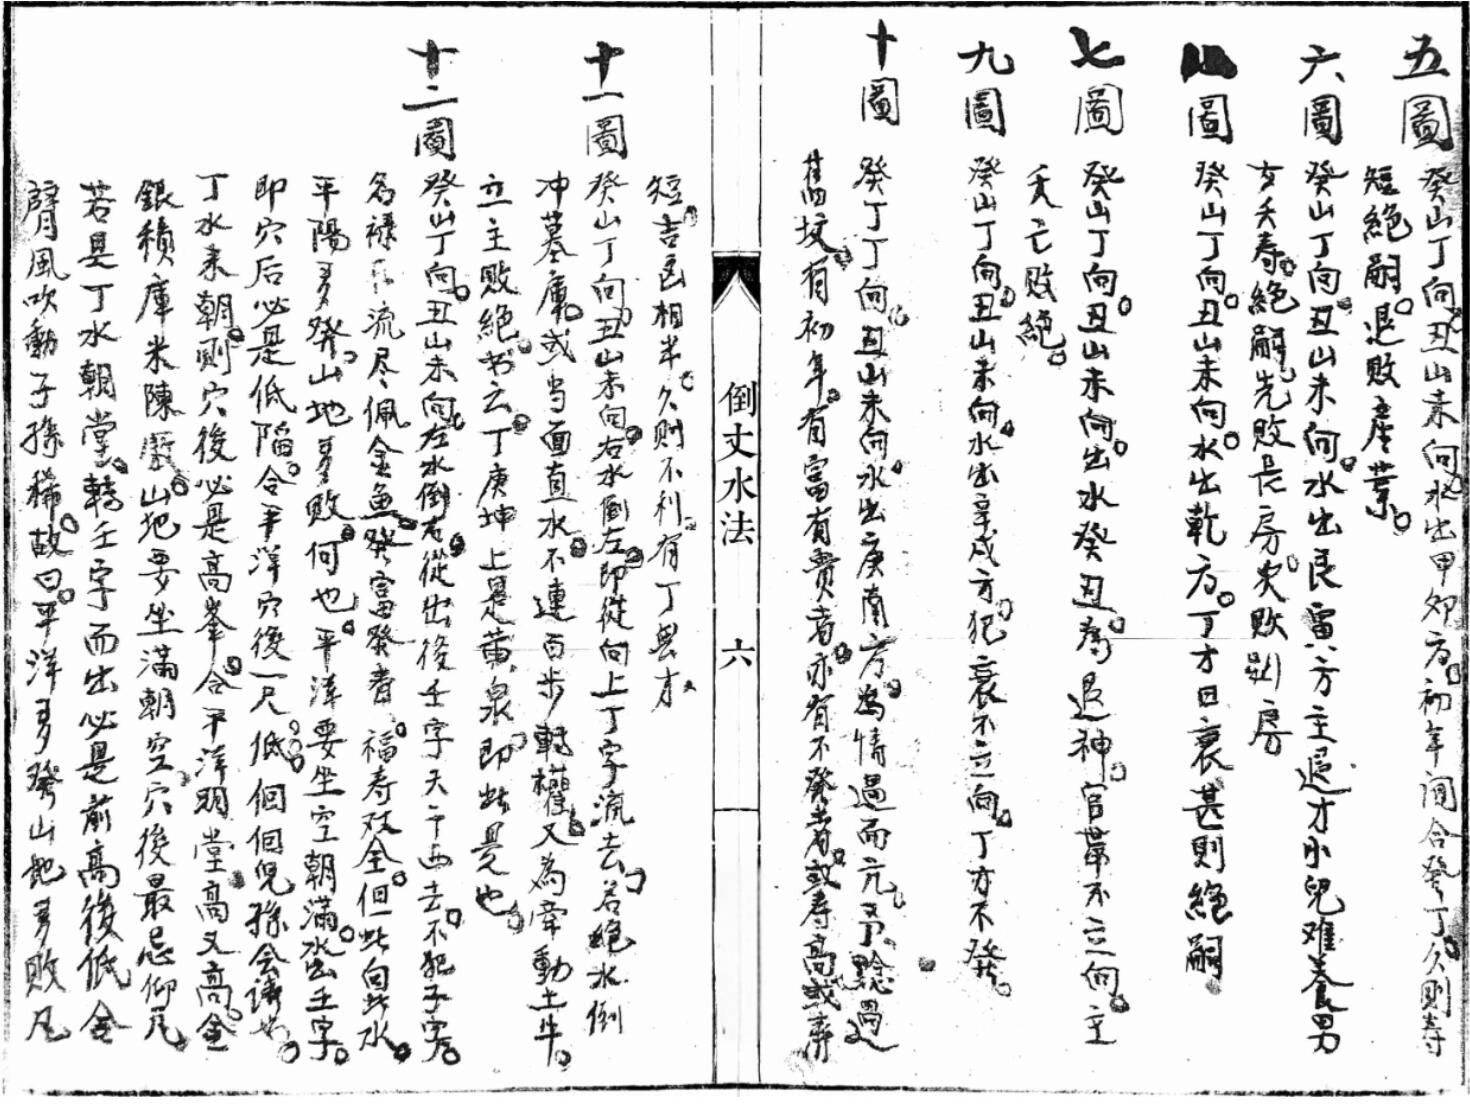 五圖 癸山丁向丑山未向水出甲卯方初年間合發丁久則壽
短絕嗣退敗產業
六圖 癸山丁向丑山未向水出艮寅方主退才小兒难養男
女夭寿絕嗣先敗長房次敗别房
圖 癸山丁向丑山未向水出乾方丁才日衰甚則絕嗣
七圖 癸山丁向丑山未向出水癸丑為退神官帶不立向主
夭亡敗絕
九圖 癸山丁向丑山未向水出辛戌方犯衰不立向丁方不發
十圖 癸丁丁向丑山未向水出庚南方為情過而亢予驗過
舊坟有初年有富有貴者亦有不發者或寿高或弃
倒丈水法 六
短吉凶相半久則不利有丁無才
十一圖 癸山丁向丑山未向右水倒左即從向上丁字流去名絕水倒
冲墓庫或当面直水不連百步轉欄又為牽動土牛
立主敗絕书云丁庚坤上是黄泉即此是也
十二圖 癸山丁向丑山未向左水倒右從出後壬字天干而去不犯子字
名祿流尽佩金魚發富發貴福寿双全但此向此水
平陽多發山地多敗何也平洋要坐空朝滿水出壬字
即穴后必是低陷合平洋穴後一尺低個個兒孫会讀书
丁水来朝則穴後必是高峯合平洋明堂高又高金
銀積庫米陳山地要坐滿朝空穴後最忌仰凡
若是丁水朝堂轉壬字而出必是前高後低合
臂風吹動子孫稀故曰平洋多發山地多敗凡